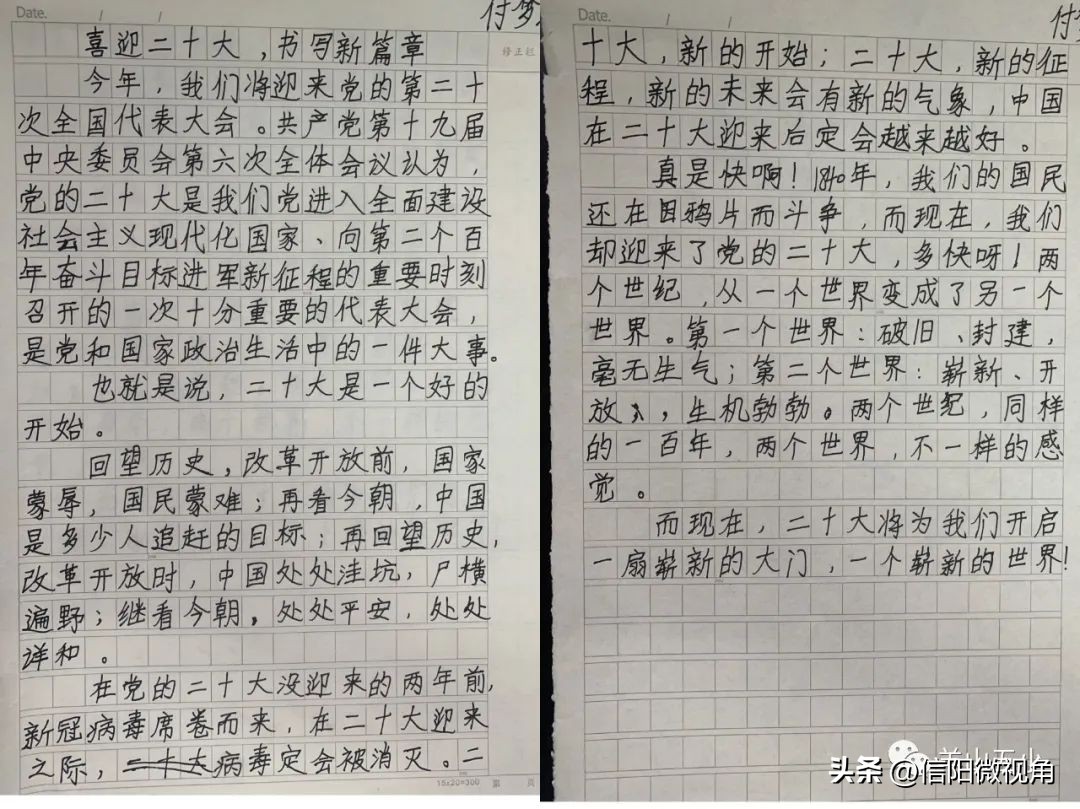 Date.
付梦
喜迎二十大，书写新篇章
修正栏
今年，我们将迎来党的第二十
次全国代表大会。共产党第十九届
中央委员会第六次全体会议认为，
党的二十大是我们党进入全面建设
社会主义现代化国家、向第二个百
年奋斗目标进军新征程的重要时刻
召开的一次十分重要的代表大会，
是党和国家政治生活中的一件大事。
也就是说，二十大是一个好的
开始。
回望历史，改革开放前，国家
蒙辱，国民蒙难；再看今朝，中国
是多少人追赶的目标；再回望历史，
改革开放时，中国处处洼坑，尸横
遍野；继看今朝，处处平安，处处
详和。
在党的二十大没迎来的两年前，
新冠病毒席卷而来，在二十大迎来
之际，二十大病毒定会被消灭。二
15x20=300 第 页
Date.
付
十大，新的开始；二十大，新的征
程，新的未来会有新的气象，中国
在二十大迎来后定会越来越好。
真是快啊！1840年，我们的国民
还在因鸦片而斗争，而现在，我们
却迎来了党的二十大，多快呀！两
个世纪，从一个世界变成了另一个
世界。第一个世界：破旧、封建，
毫无生气；第二个世界：崭新、开
放，生机勃勃。两个世纪，同样
的一百年，两个世界，不一样的感
觉。
而现在，二十大将为我们开启
一扇崭新的大门，一个崭新的世界！
羊山五小
头条 @信阳微视角